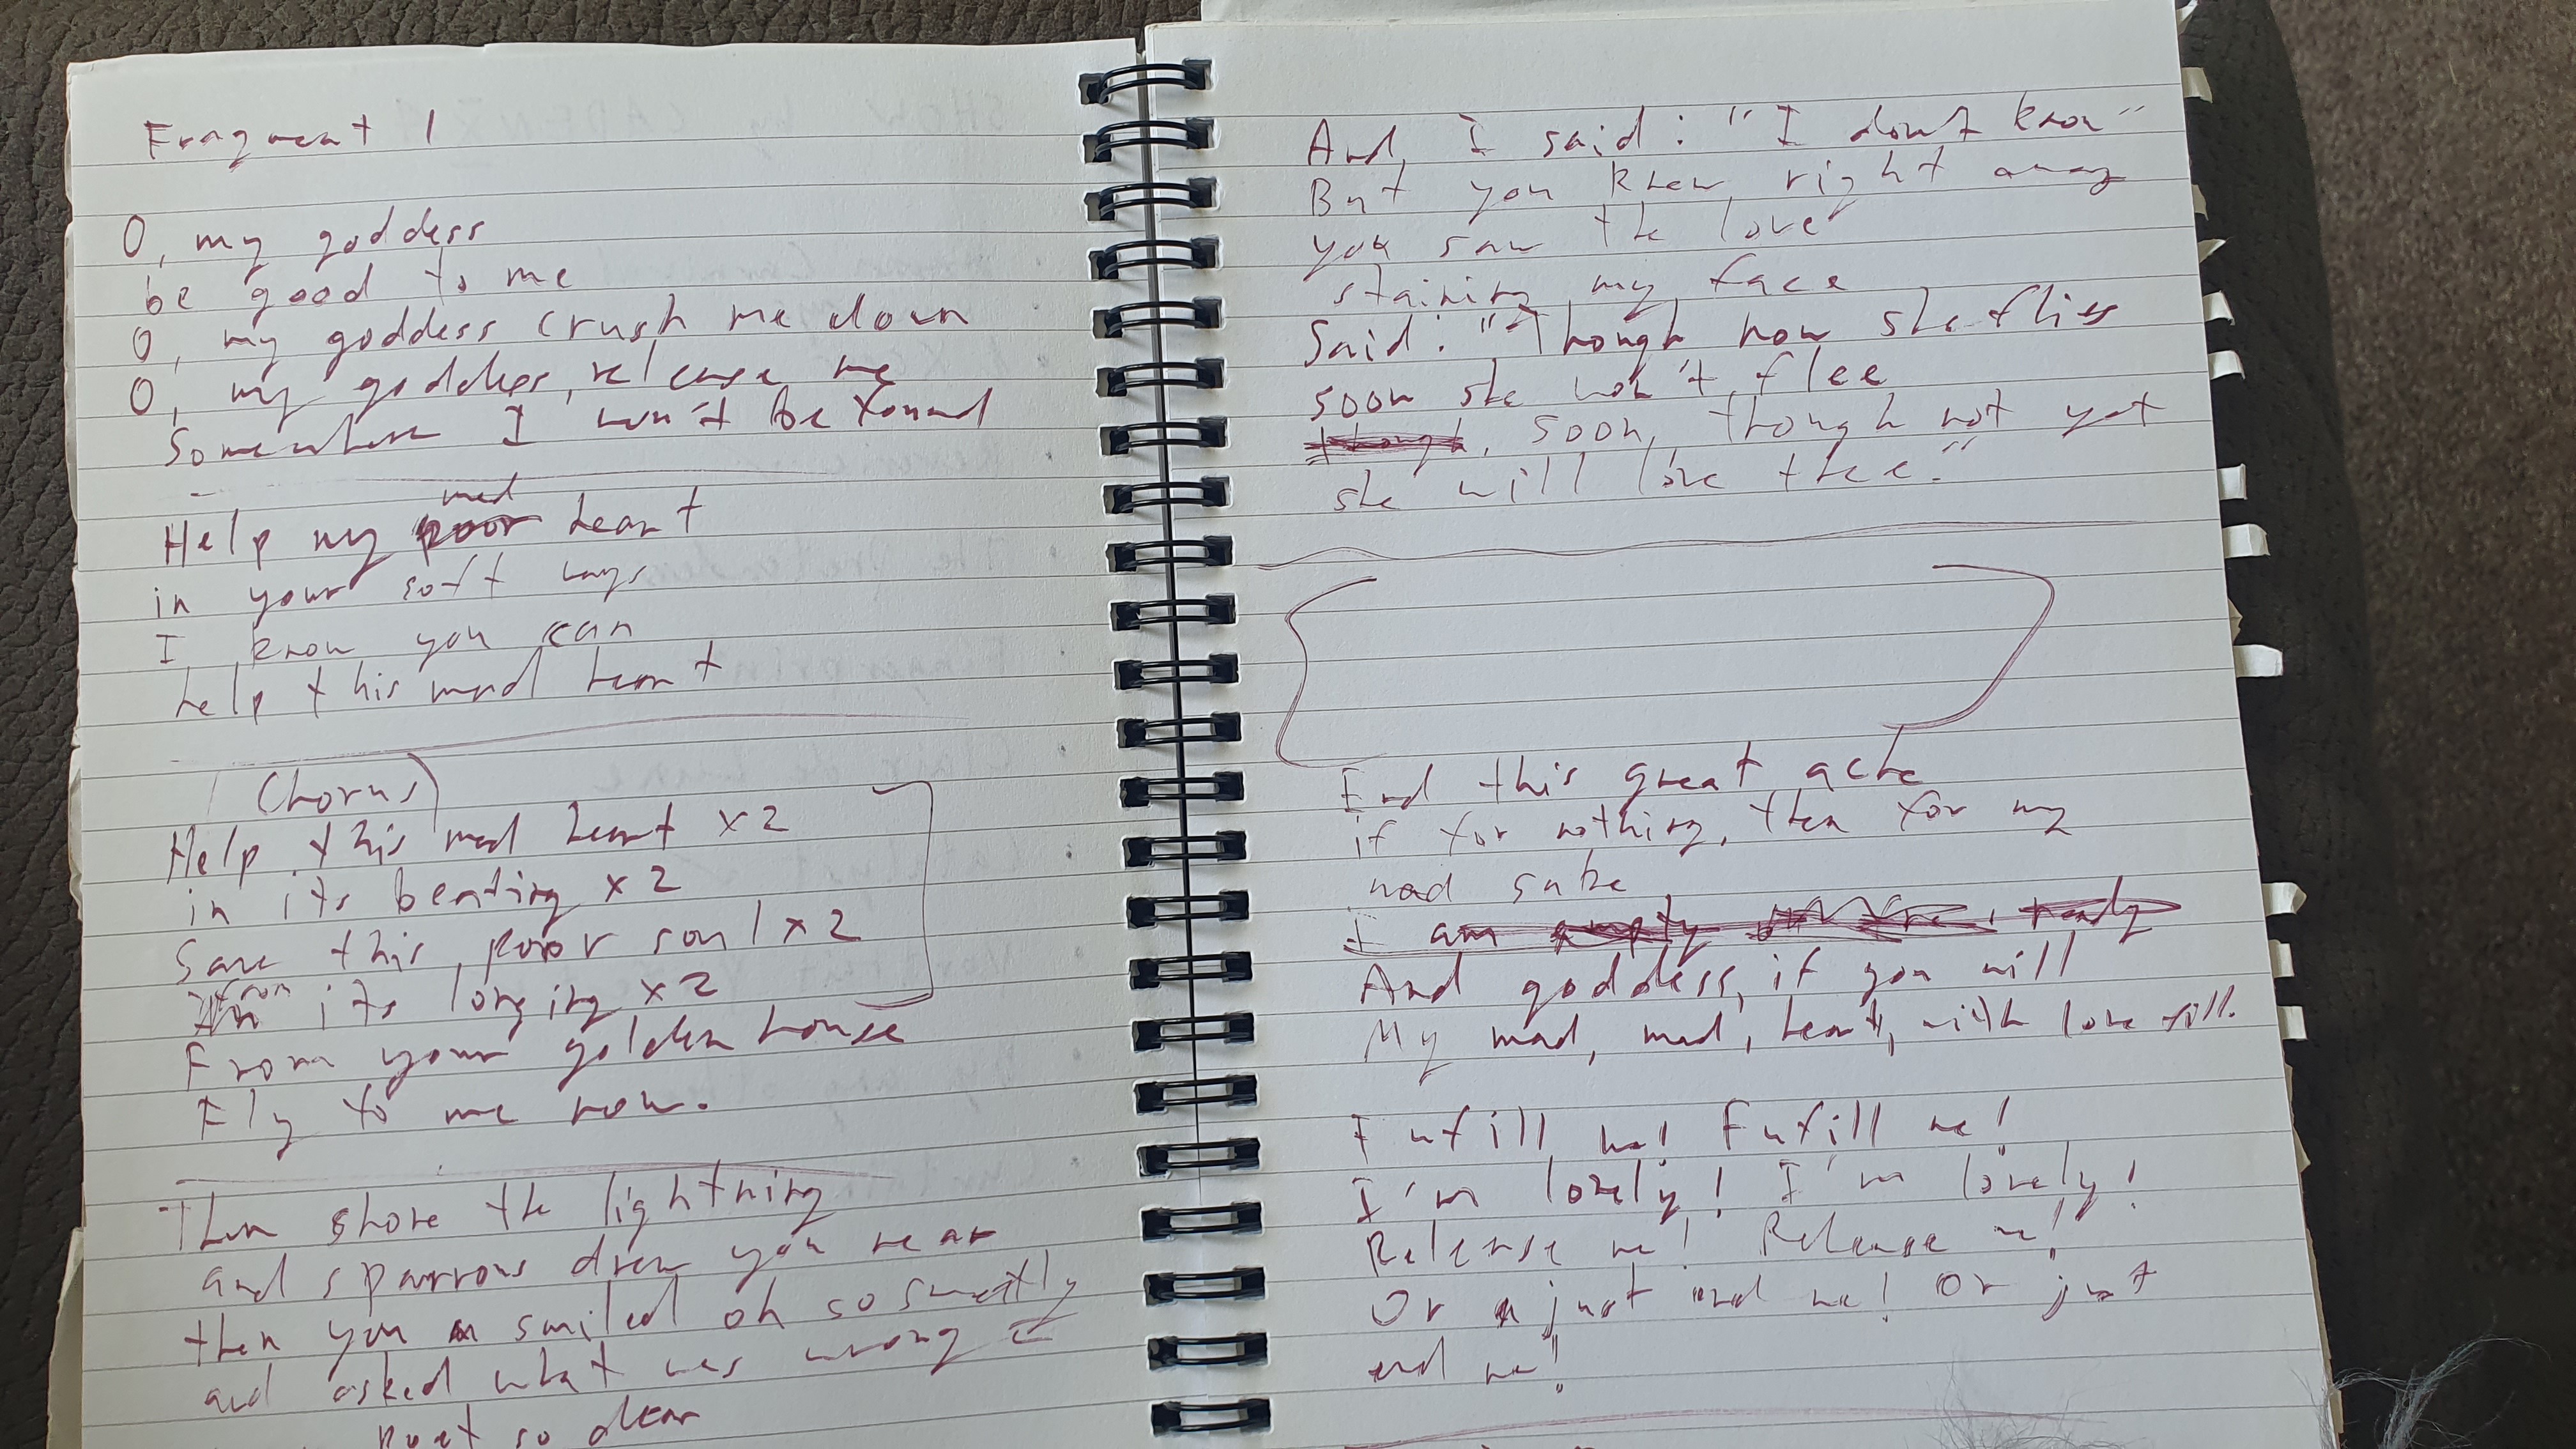 Fragment 1
O, my goddess
be good to me
O, my goddess crush me down
O, my goddess, release me
Somewhere I won't be found
mad
Help my poor heart
in your soft ways
I know you can
help this mad heart
(Chorus)
Help this mad heart x2
in its beating x2
Save this, poor soul x2
from its longing x2
From your golden house
Fly to me now.
Then shone the lightning
and sparrows drew you near
then you smiled oh so sweetly
and asked what was wrong
poet so dear
And, I said: "I don't know"
But you knew right away
you saw the love
staining my face
Said: "Though now she flies
soon she won't flee
though, soon, though not yet
she will love thee."
End this great ache
if for nothing, then for my
mad sake
I am empty ready
And goddess, if you will
My mad, mad, heart, with love fill.
Fufill me! Fufill me!
I'm lonely! I'm lonely!
Release me! Release me!
Or just end me! Or just
end me!